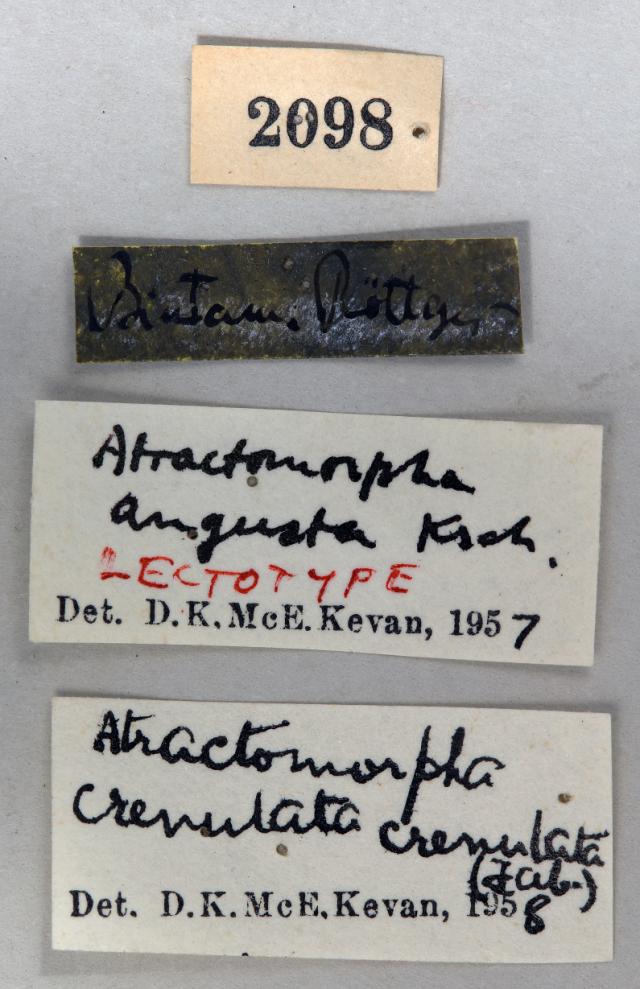 2098
Bintam. Röttger
Atractomorpha
angusta Ksch.
LECTOTYPE
Det. D.K.McE.Kevan, 1957
Atractomorpha
crenulata crenulata
(Fab.)
Det. D.K.McE.Kevan, 1958